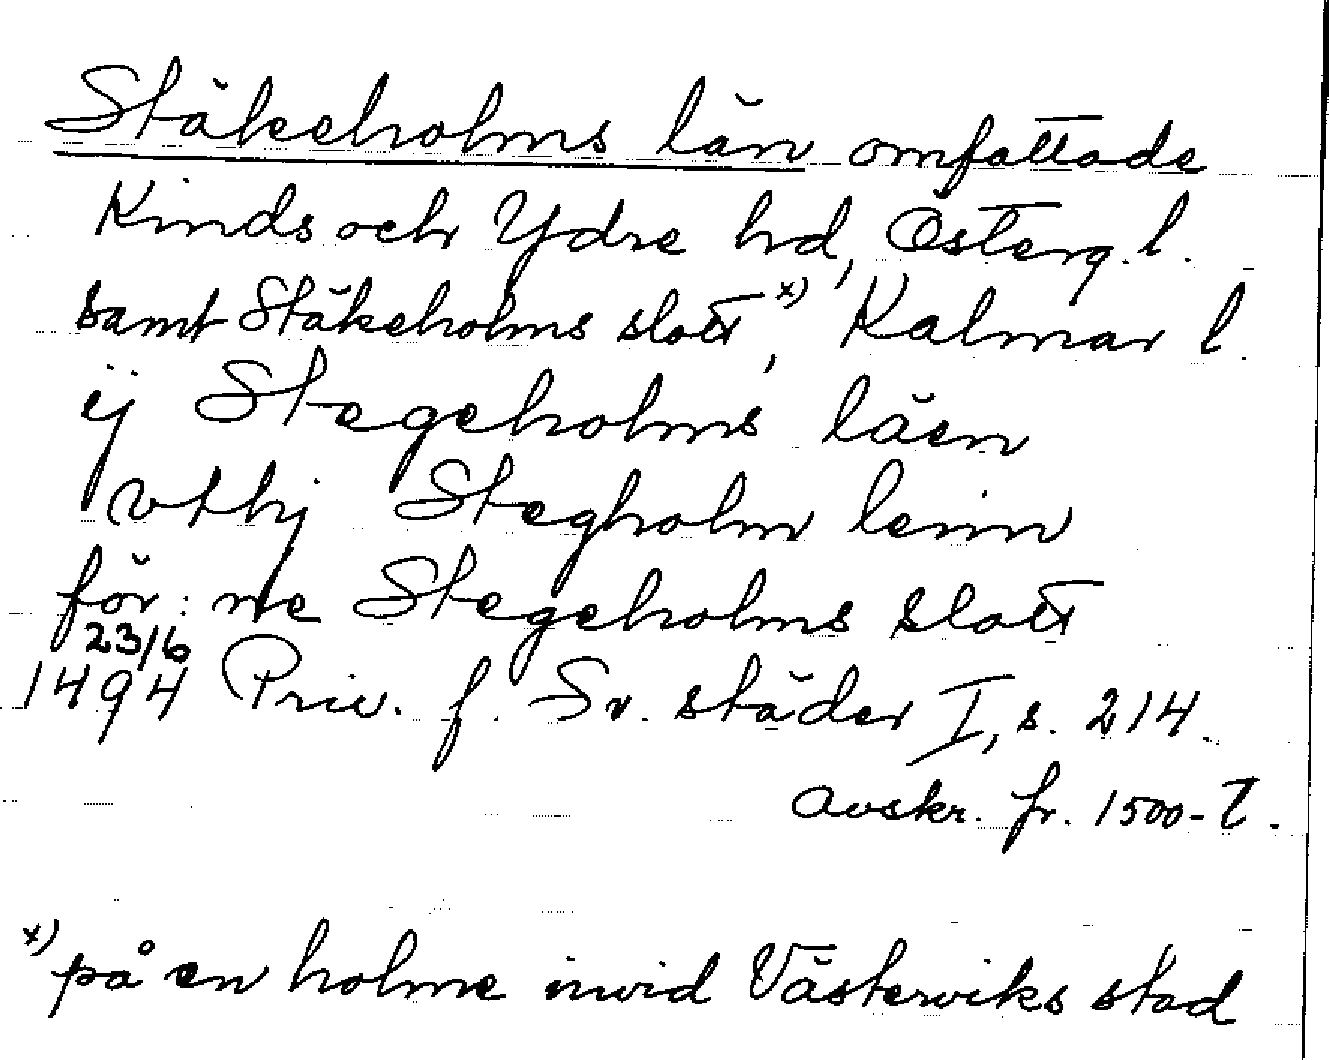 Stäkeholms län omfattade
Kinds och Ydre hd, Österg. l.
samt Stäkeholms slott x), Kalmar l.
ij Stegeholms läen
vthj Stegholm leinn
för:ne Stegeholms slott
23/6
1494 Priv. f. Sv. städer I, s. 214.
avskr. fr. 1500-t.
x) på en holme invid Västerviks stad